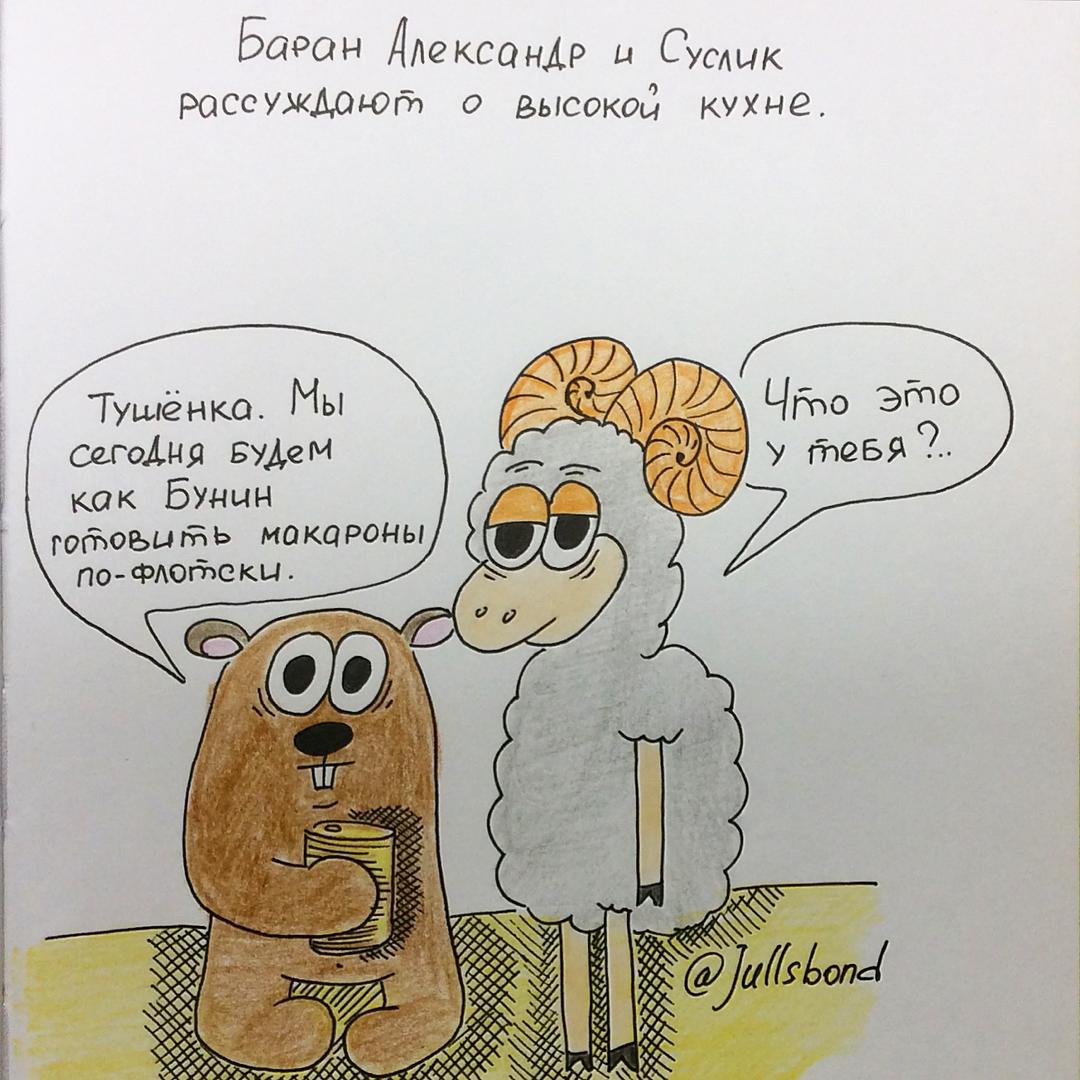 Баран Александр и Суслик
рассуждают о высокой кухне.
Что это
у тебя?..
Тушёнка. Мы
сегодня будем
как Бунин
готовить макароны
по-флотски.
@Jullsbond